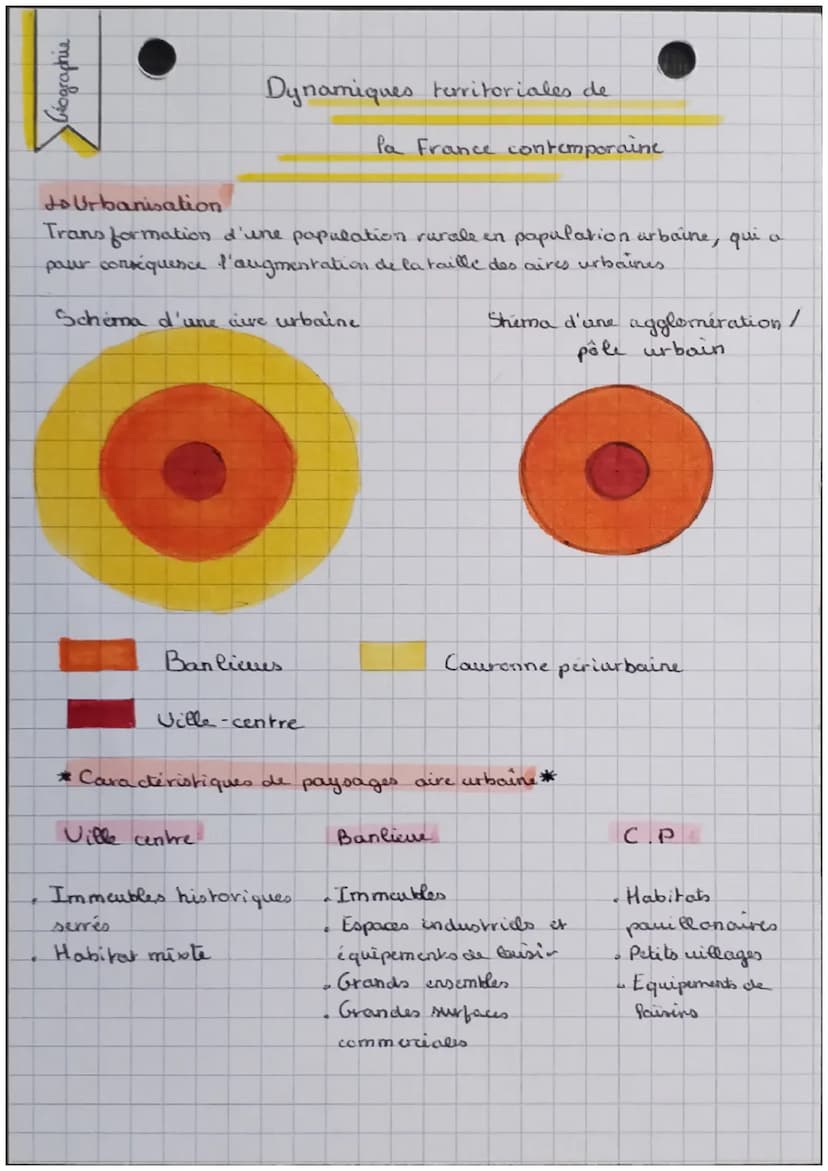 Géographie
Dynamiques territoriales de
la France contemporaine
↳ Urbanisation
Transformation d'une population rurale en population urbaine, qui a
pour conséquence l'augmentation de la taille des aires urbaines
Schéma d'une aire urbaine
Shéma d'une agglomération /
pôle urbain
Banlieues
Couronne périurbaine
Ville-centre
* Caractéristiques de paysages aire urbaine *
Ville centre
Banlieue
C.P
. Immeubles historiques
serrés
. Habitat mixte
. Immeubles
. Espaces industriels et
équipements de loisir
. Grands ensembles
. Grandes surfaces
commerciales
. Habitats
pavillonaires
. Petits villages
. Equipements de
loisirs